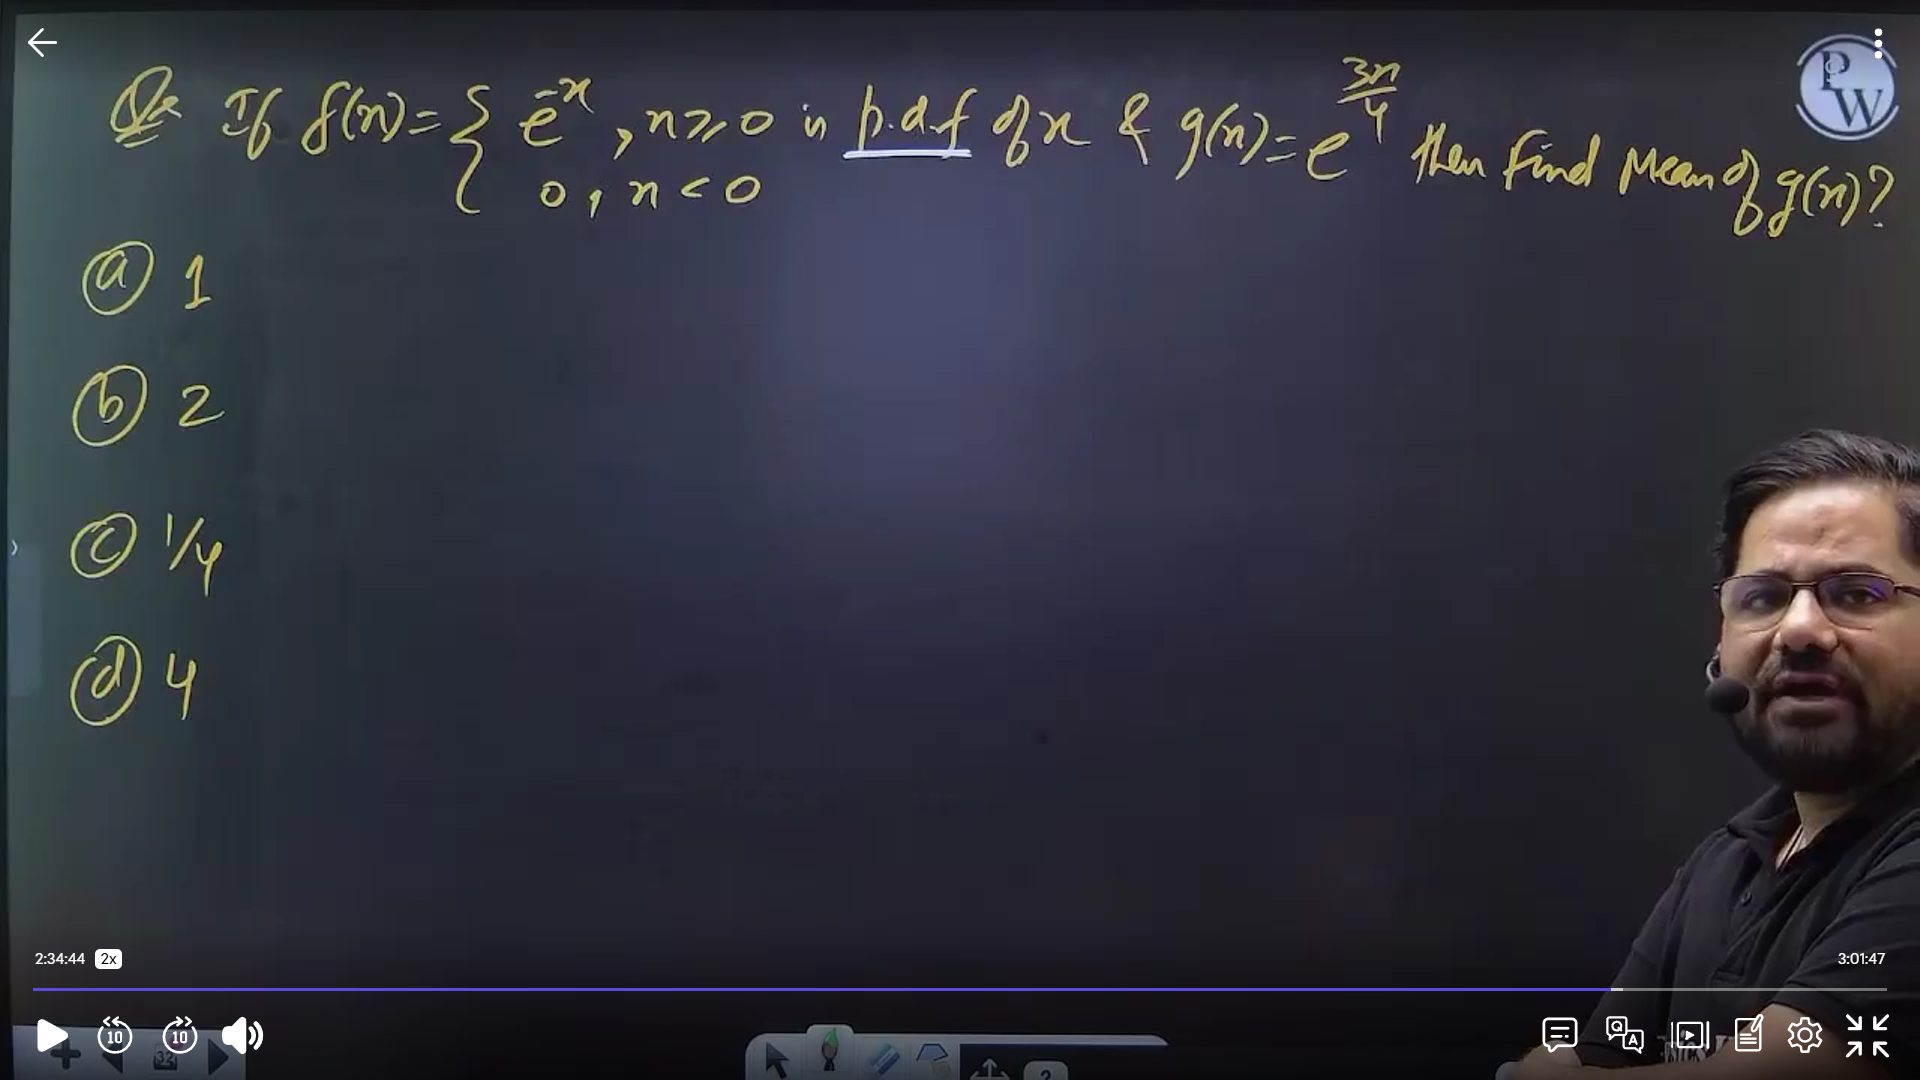 Q. If f(x)= { e^-x , x ≥ 0 is p.d.f of x & g(x)= e^3x/4 then find Mean of g(x)?
0 , x < 0
PW
(a) 1
(b) 2
(c) 1/4
(d) 4
2:34:44 2x 3:01:47
10 10
32